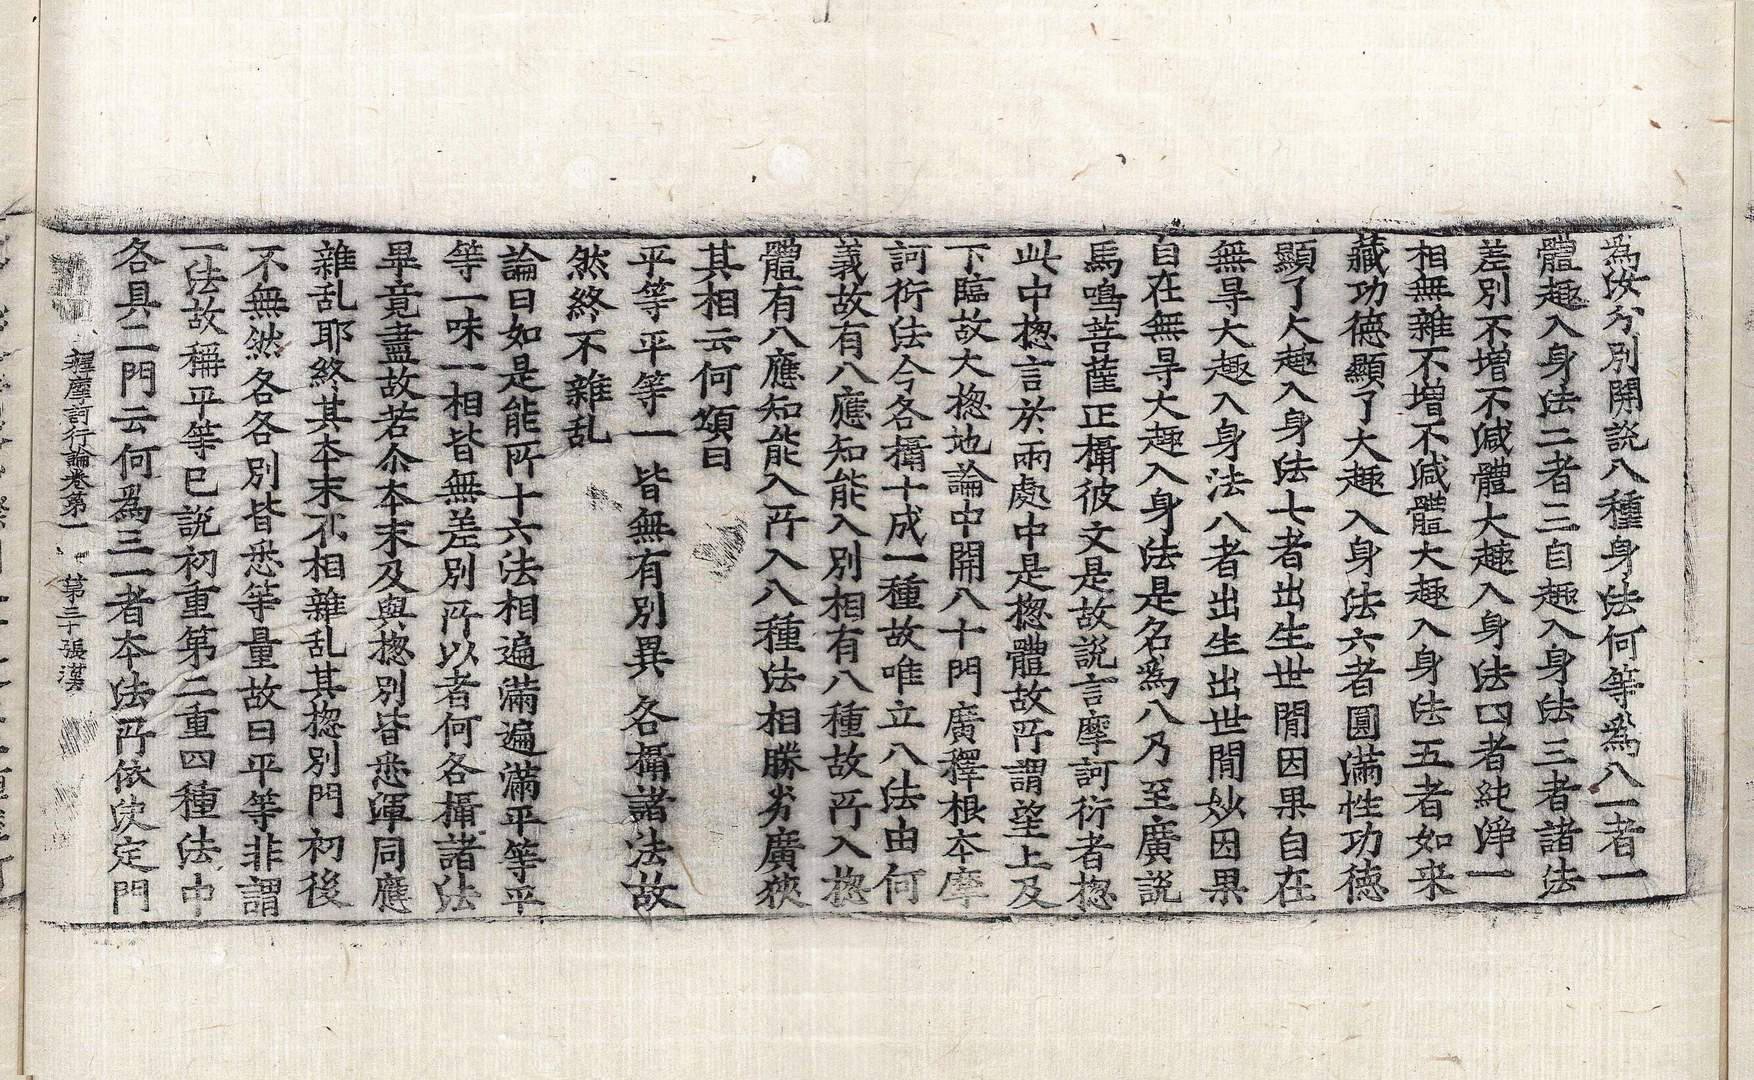 為汝分別開説八種身法何等為八一者一
體趣入身法二者二自趣入身法三者諸法
差別不增不減體大趣入身法四者純淨一
相無雜不增不減體大趣入身法五者如来
藏功德顯了大趣入身法六者圓滿性功德
顯了大趣入身法七者出生世間因果自在
無㝵大趣入身法八者出生出世間妙因果
自在無㝵大趣入身法是名為八乃至廣説
馬鳴菩薩正攝彼文是故説言摩訶衍者揔
此中揔言於兩處中是揔體故所謂望上及
下臨故大揔地論中開八十門廣釋根本摩
訶衍法今各攝十成一種故唯立八法由何
義故有八應知能入別相有八種故所入揔
體有八應知能入所入八種法相勝劣廣狹
其相云何頌曰
平等平等一 皆無有別異 各攝諸法故
然終不雜乱
論曰如是能所十六法相遍滿遍滿平等平
等一味一相皆無差別所以者何各攝諸法
畢竟盡故若尒本末及與揔別皆悉渾同應
雜乱耶終其本末不相雜乱其揔別門初後
不無然各各別皆悉等量故曰平等非謂
一法故稱平等已説初重第二重四種法中
各具二門云何為三一者本法所依決定門
釋摩訶衍論卷第一 第二十張 漢